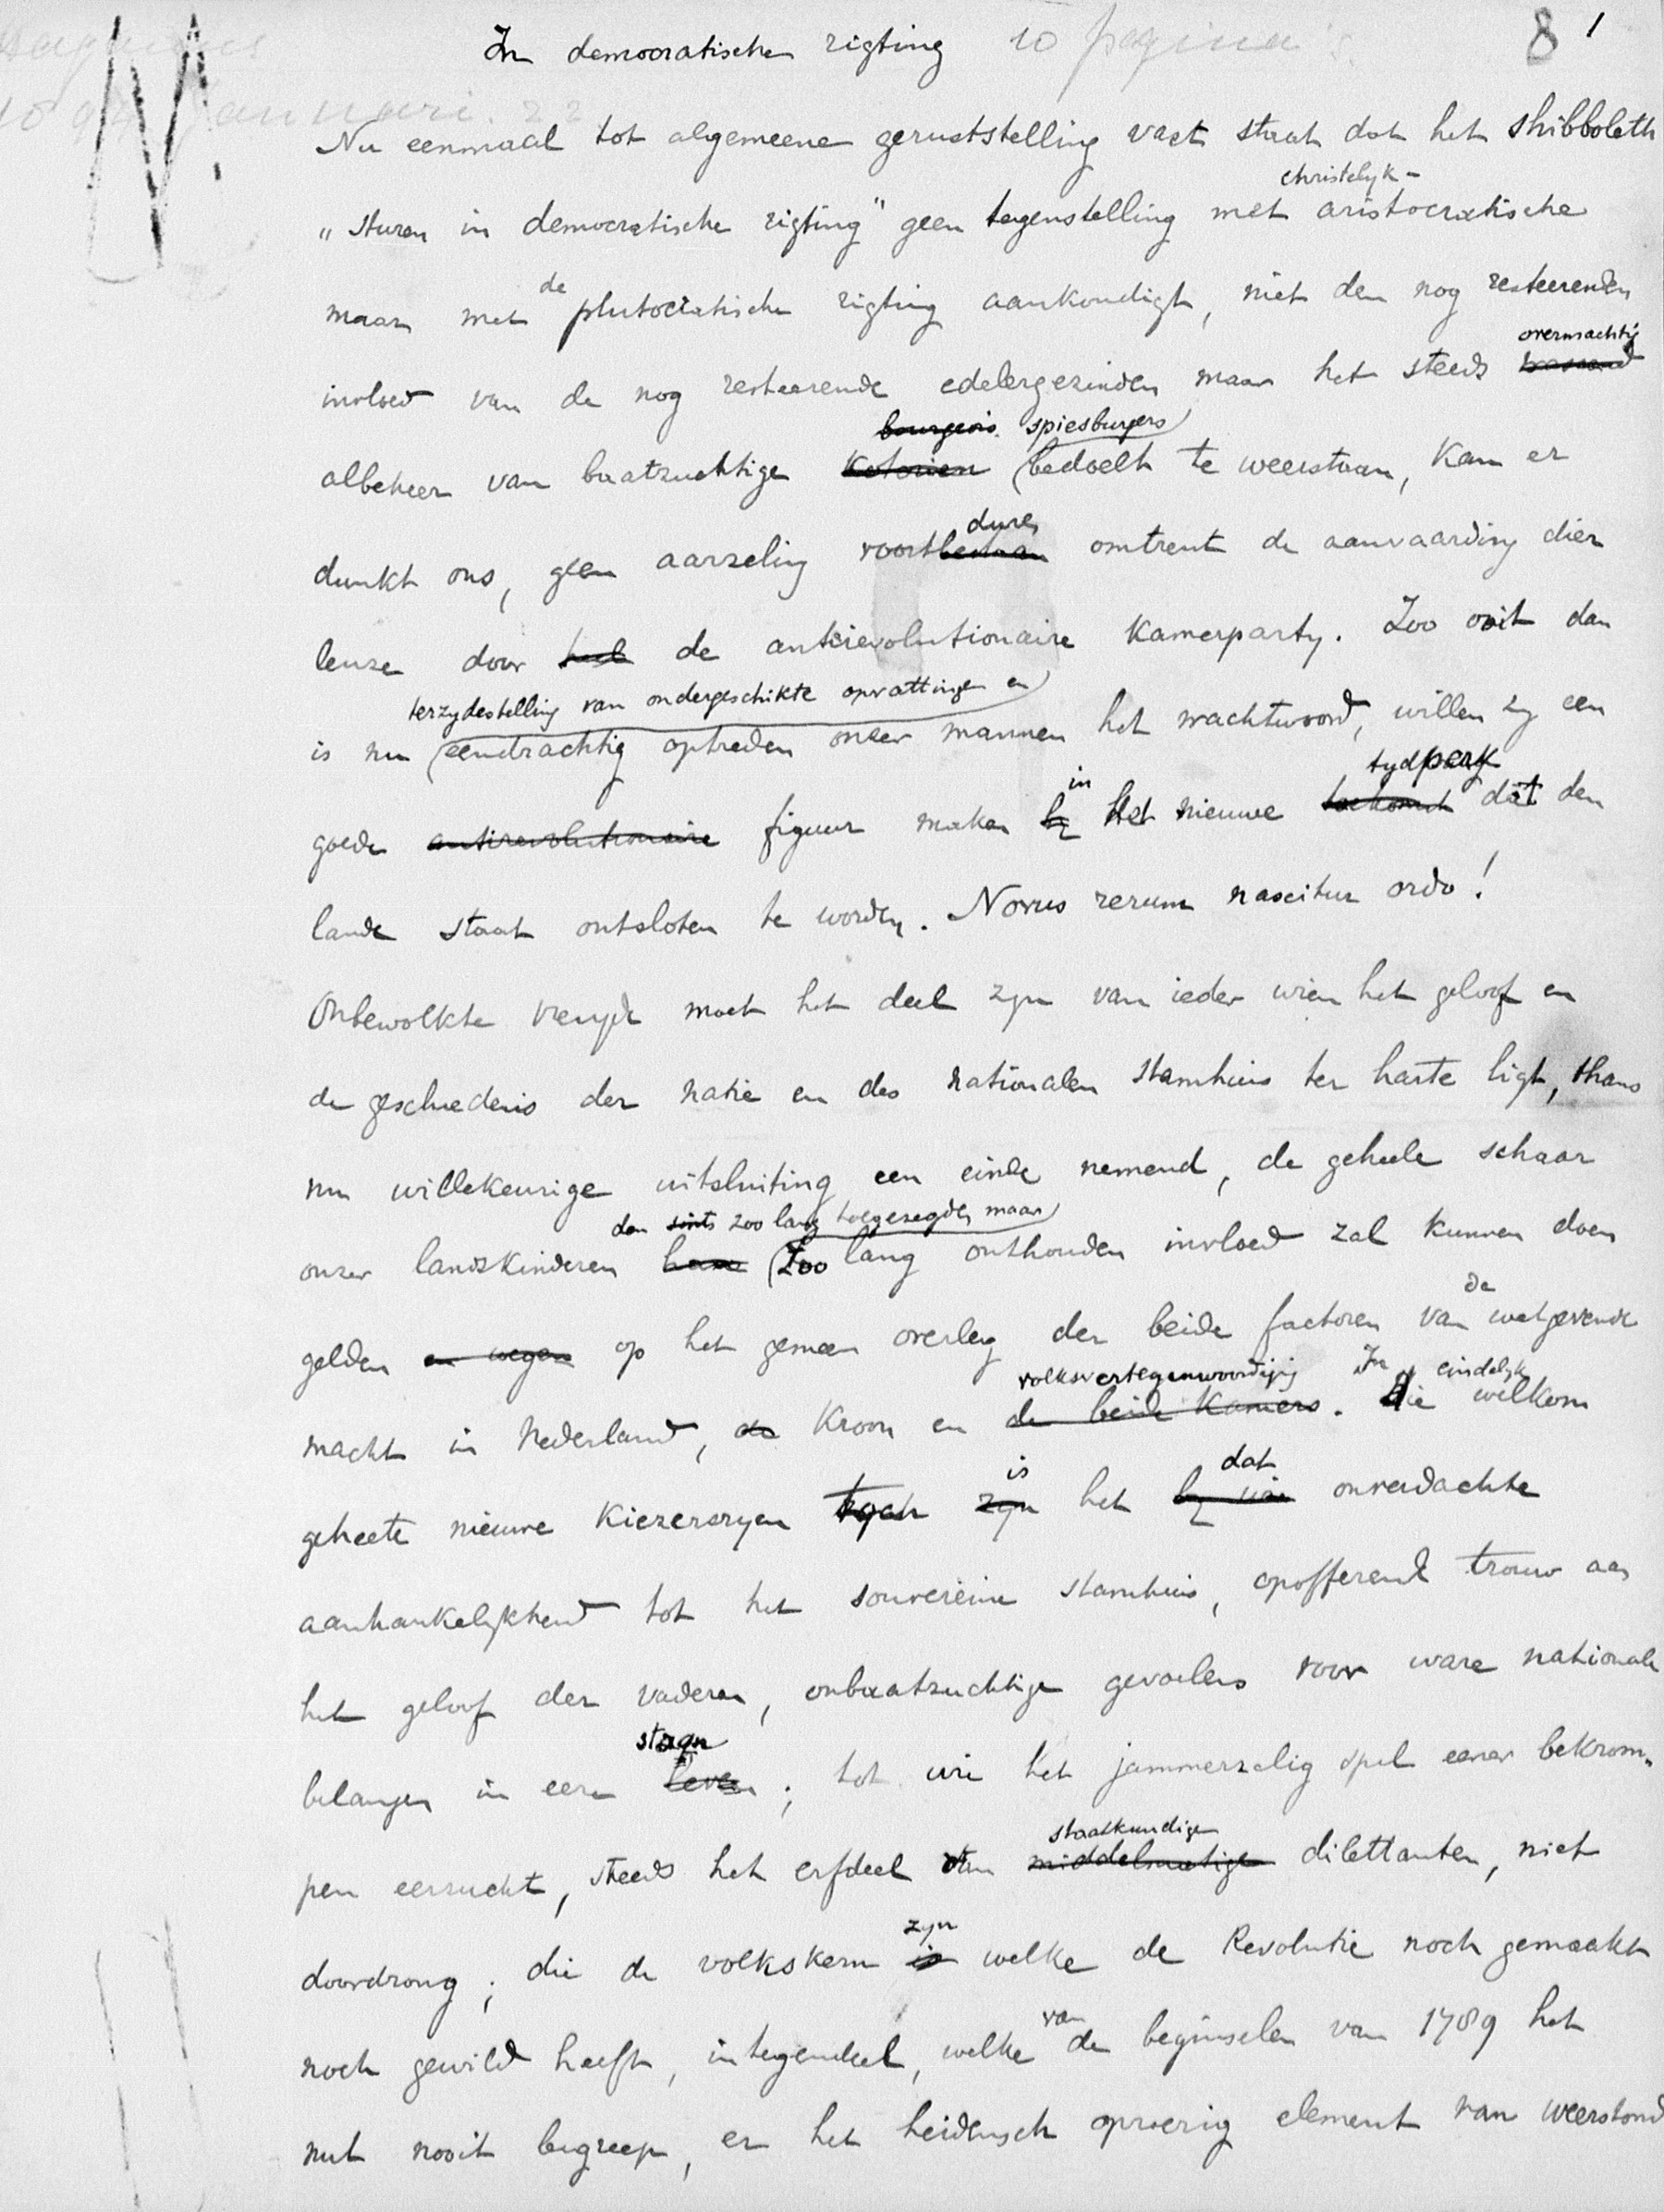 In democratische rigting 10 pagina's. 8 1
Januari. 22
N.
Nu eenmaal tot algemeene geruststelling vast staat dat het shibboleth
christelyk-
„sturen in democratische rigting" geen tegenstelling met aristocratische
de
maar met plutocratische rigting aankondigt, niet den nog resteerenden
overmachtig
invloed van de nog resteerende edelergezinden maar het steeds
bourgeois. spiesburgers
albeheer van baatzuchtige (bedoelt te weerstaan, kan er
duren
dunkt ons, geen aarzeling voortbestaan omtrent de aanvaarding dier
leuze door heel de antirevolutionaire Kamerparty. Zoo ooit dan
terzydestelling van ondergeschikte opvattingen en
is nu (eendrachtig optreden onzer mannen het wachtwoord, willen zy een
in tydperk
goede antirevolutionaire figuur maken by het nieuwe toekomst dat den
lande staat ontsloten te worden. Novus rerum nascitur ordo!
Onbewolkte vreugde moet het deel zyn van ieder wien het geloof en
de geschiedenis der natie en des nationalen stamhuis ter harte ligt, thans
nu willekeurige uitsluiting een einde nemend, de geheele schaar
den sints zoo lang toegezegden maar
onzer landskinderen haar (zoo lang onthouden invloed zal kunnen doen
de
gelden en wegen op het gemeen overleg der beide factoren van wetgevende
volksvertegenwoordiging In eindelyk
macht in Nederland, de Kroon en de beide Kamers. die welkom
is dat
geheete nieuwe kiezersryen toch zyn het by wie onverdachte
aanhankelykheid tot het souvereine stamhuis, opofferend trouw aan
het geloof der vaderen, onbaatzuchtige gevoelens voor ware nationale
staan
belangen in eere leven; tot wie het jammerzalig spel eener bekrom-
staatkundige
pen eerzucht, steeds het erfdeel van middelmatige dilettanten, niet
zyn
doordrong; die de volkskern is welke de Revolutie noch gemaakt
van
noch gewild heeft, integendeel, welke de beginselen van 1789 het
nut nooit begreep, en het heidensch oproerig element van weerstond